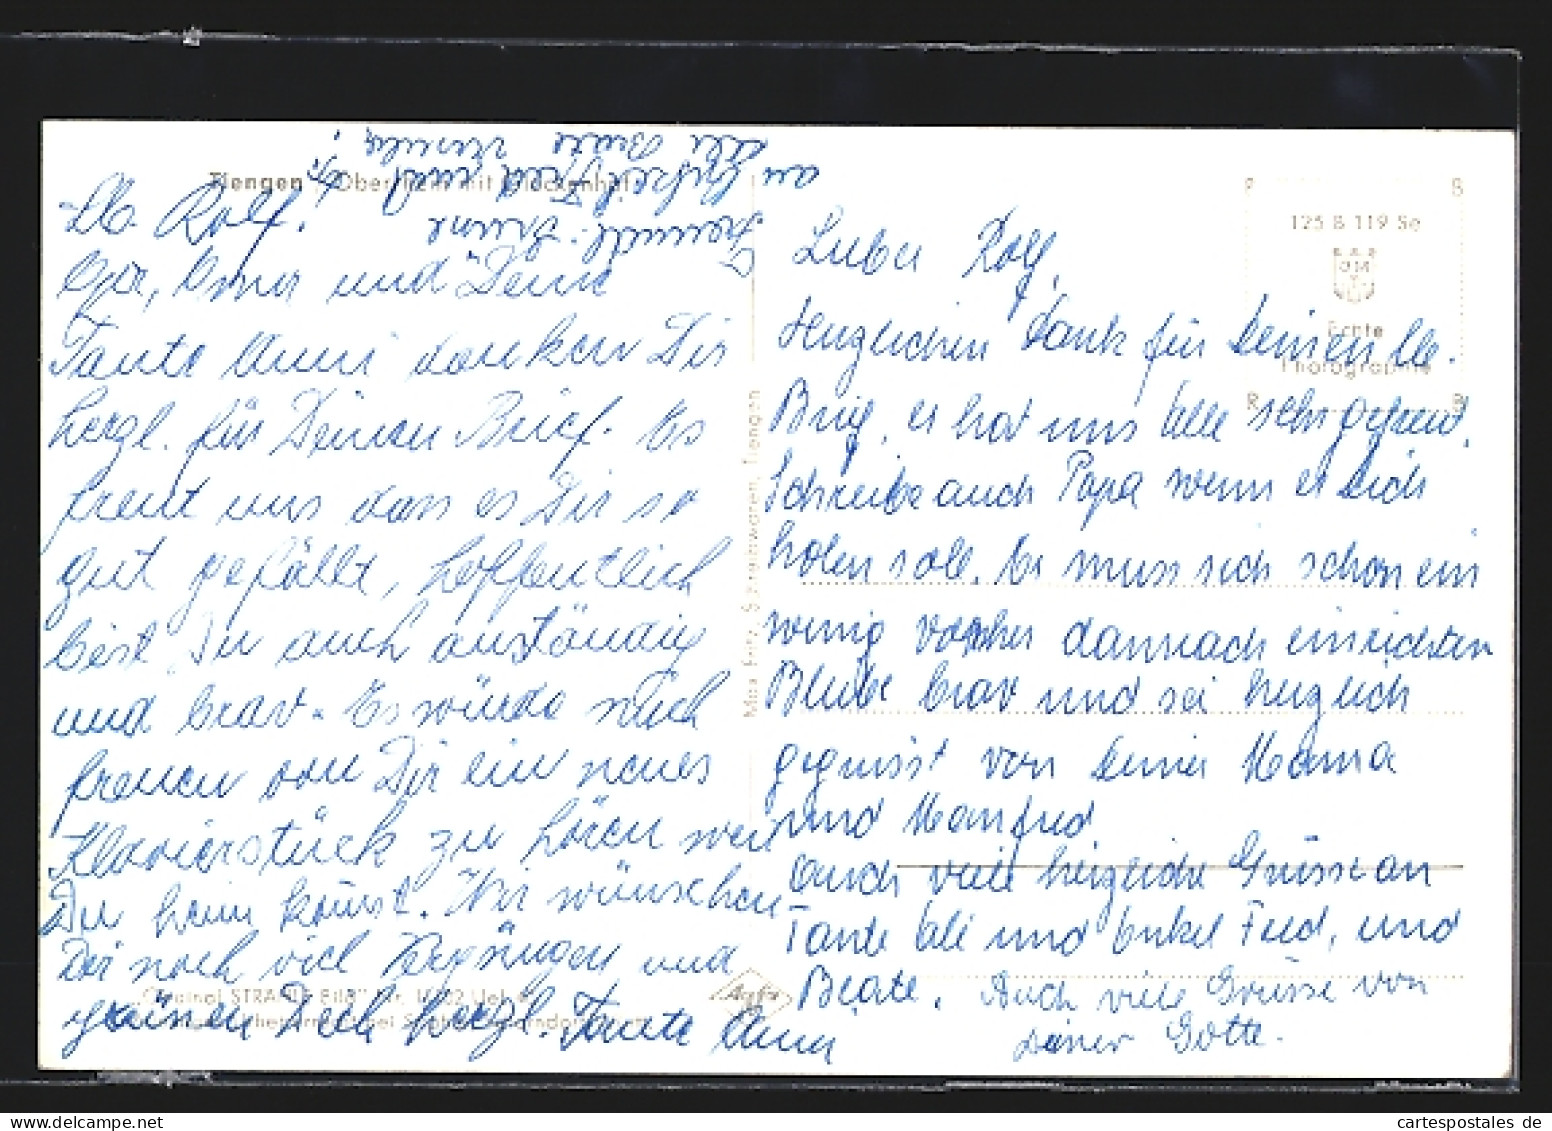 Tiengen / Oberrhein mit Glockenhof
Lb. Rolf.
Opa, Oma und Deine
Tante Anni danken Dir
herzl. für Deinen Brief. Es
freut uns dass es Dir so
gut gefällt, hoffentlich
bist Du auch anständig
und brav. Es würde mich
freuen von Dir ein neues
Klavierstück zu hören wen
Du heim komst. Wir wünschen
Dir noch viel Vergnügen und
grüssen Dich herzl. Tante Anni
Freundl. Grüsse
an Onkel Fred und
Ali Beate
Max Fritz, Schreibwaren, Tiengen
Lieber Rolf,
Herzlichen Dank für Deinen lb.
Brief, er hat uns alle sehr gefreut.
Schreibe auch Papa wenn er Dich
holen soll. Er muss sich schon ein
wenig vorher dannach einrichten
Bleibe brav und sei herzlich
gegrüsst von Deiner Mama
und Manfred
Auch viele herzliche Grüsse an
Tante Ali und Onkel Fred, und
Beate. Auch viele Grüsse von
Deiner Gotte.
125 B 119 Se
Echte
Photographie
Agfa
www.cartespostales.de